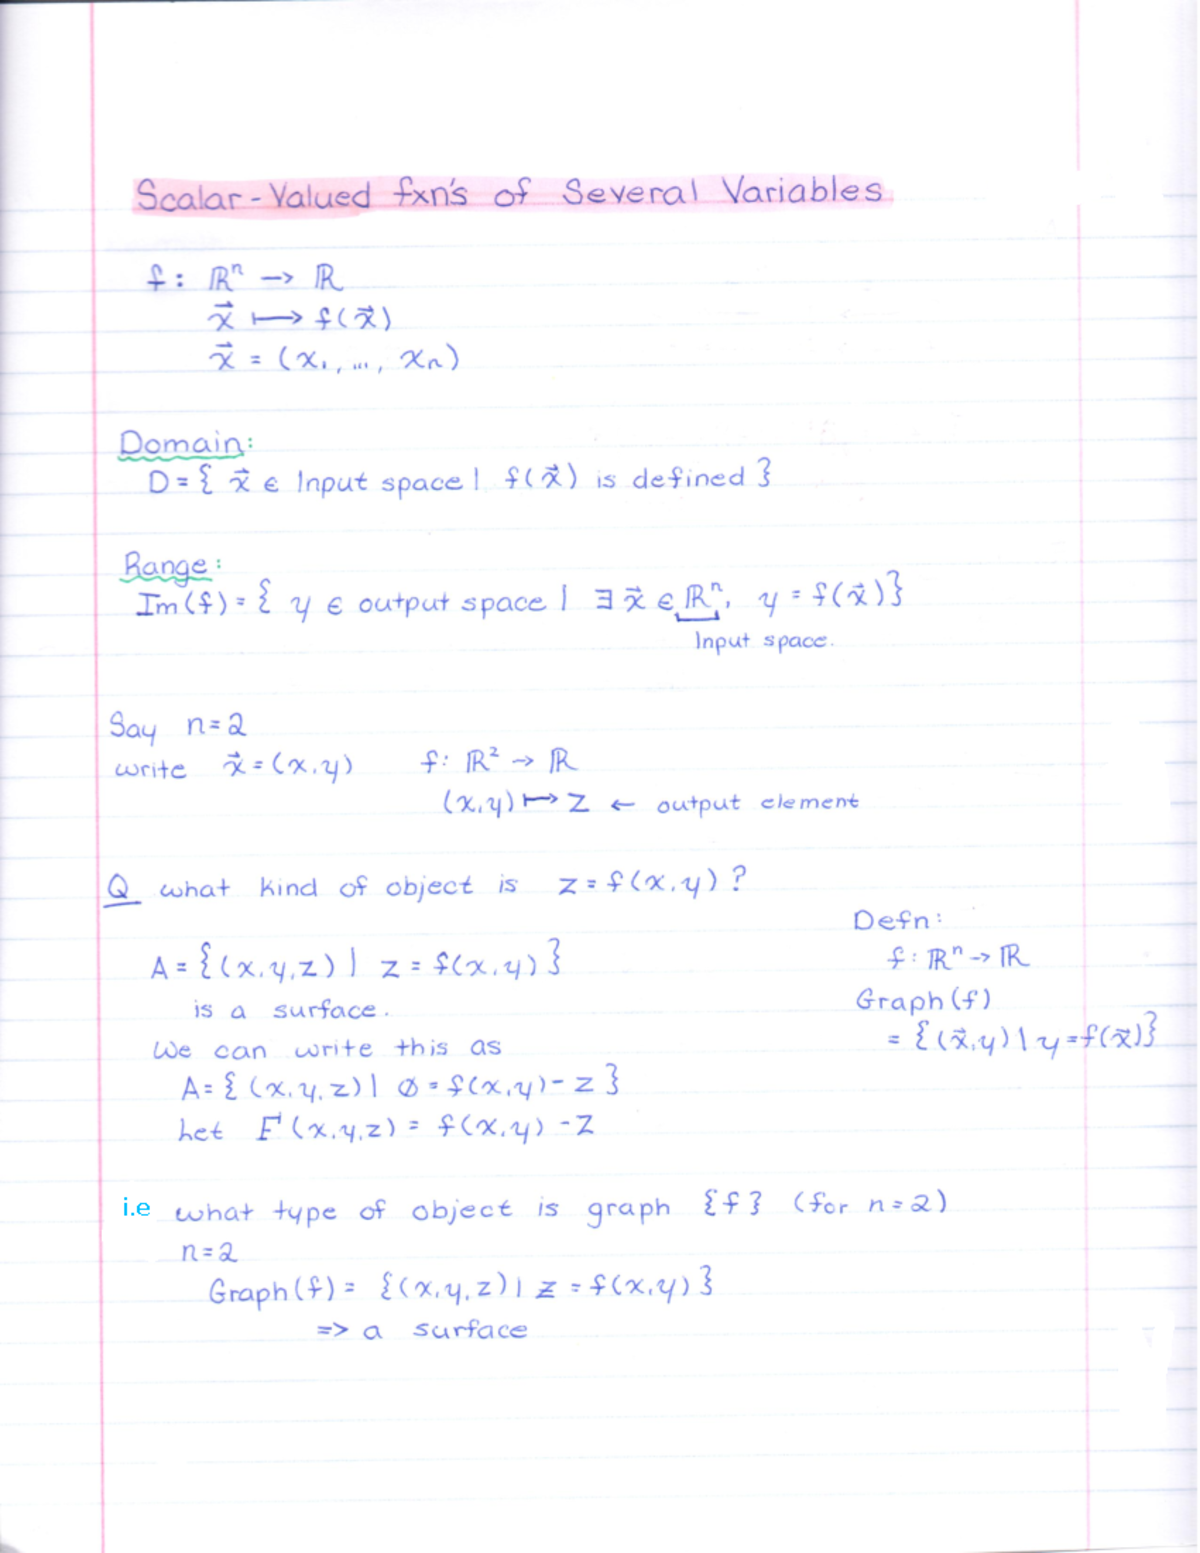 Scalar-Valued fxn's of Several Variables
f: ℝⁿ → ℝ
x⃗ ⟼ f(x⃗)
x⃗ = (x₁, ..., xₙ)
Domain:
D = { x⃗ ∈ Input space | f(x⃗) is defined }
Range:
Im(f) = { y ∈ output space | ∃ x⃗ ∈ ℝⁿ, y = f(x⃗) }
Input space.
Say n=2
write x⃗ = (x,y) f: ℝ² → ℝ
(x,y) ⟼ z ← output element
Q what kind of object is z = f(x,y) ?
A = {(x,y,z) | z = f(x,y) }
is a surface.
We can write this as
A = { (x,y,z) | 0 = f(x,y) - z }
Let F(x,y,z) = f(x,y) - z
Defn:
f: ℝⁿ → ℝ
Graph(f)
= {(x⃗,y) | y = f(x⃗)}
i.e what type of object is graph {f} (for n=2)
n=2
Graph(f) = {(x,y,z) | z = f(x,y) }
=> a surface